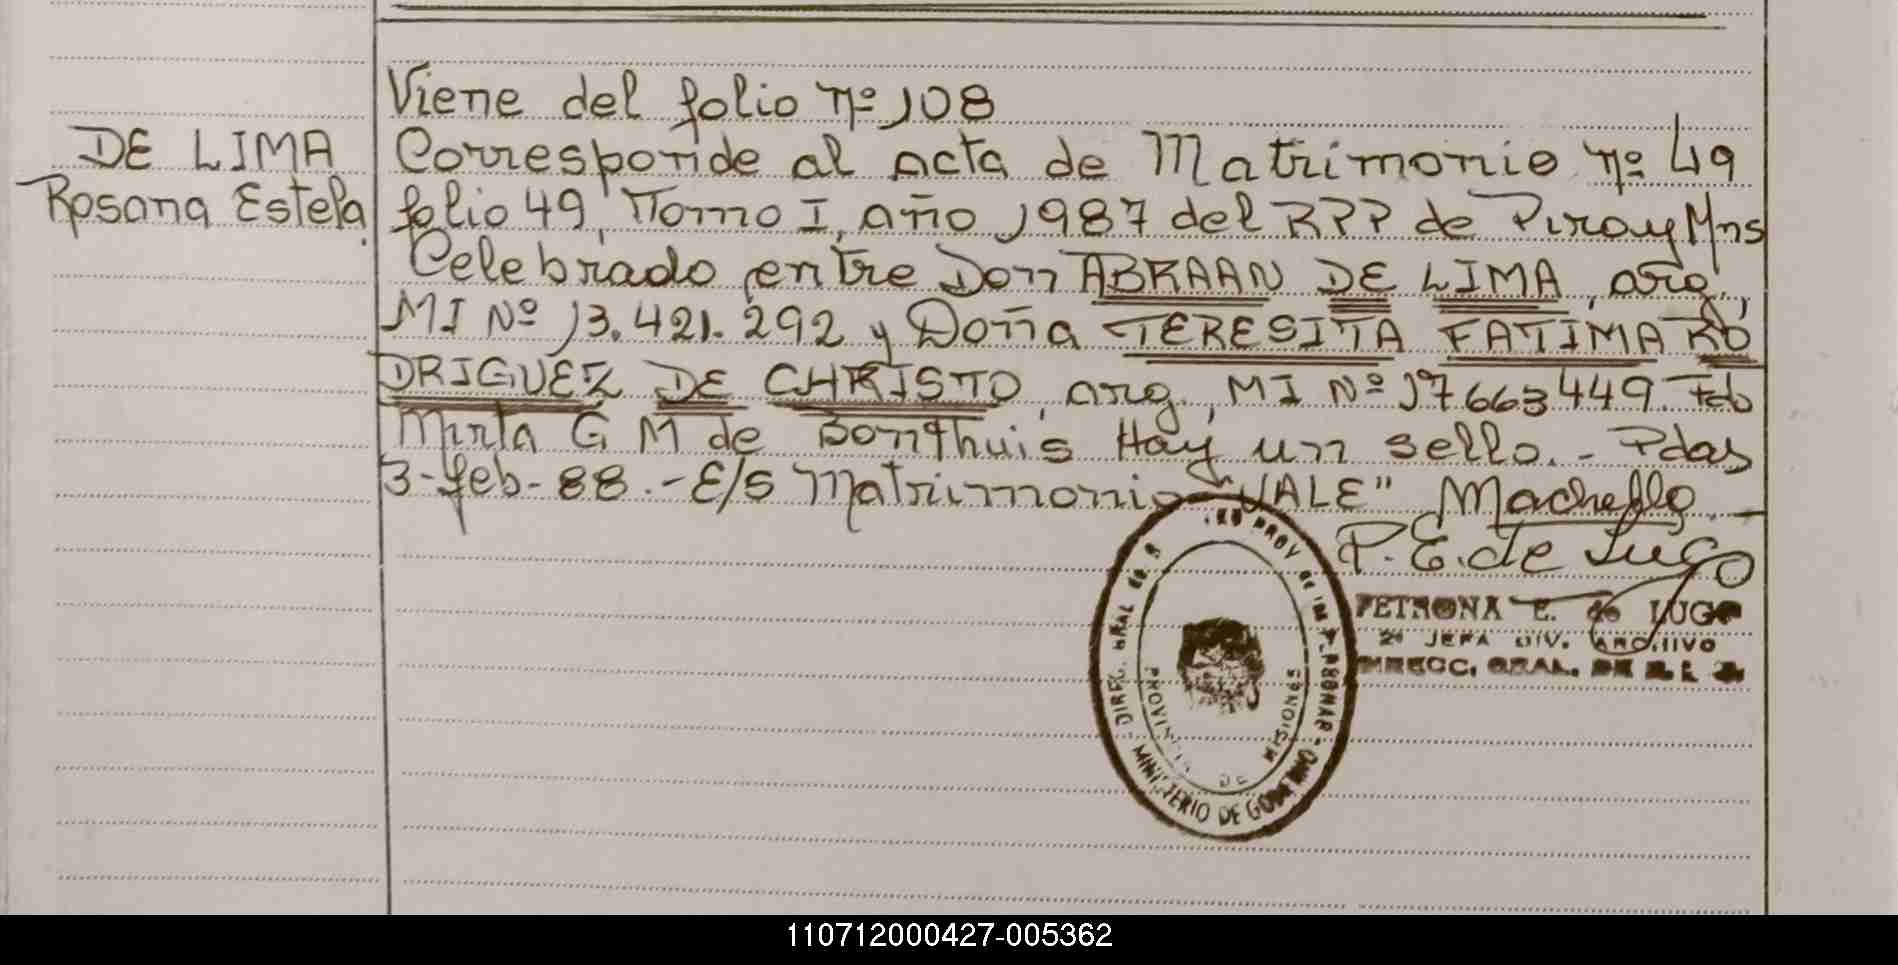 Viene del folio nº 108
DE LIMA
Rosana Estela
Corresponde al acta de Matrimonio nº 49
folio 49, Tomo I, año 1987 del RPP de Piray Mns
Celebrado entre Don ABRAAN DE LIMA, arg.,
MI Nº 13.421.292 y Doña TERESITA FATIMA RO
DRIGUEZ DE CHRISTO, arg., MI Nº 17663449. Fdo
Mirta G M de Bonthuis Hay un sello.- Pdas
3-feb-88.- E/S Matrimonio "VALE" Machello.-
P.E. de Lugo
PETRONA E. de LUGO
2ª JEFA DIV. ARCHIVO
DIRECC. GRAL. DE
DIREC. GRAL de PROV de las PERSONAS - MINISTERIO DE GOBIERNO
PROVINCIA DE MISIONES
110712000427-005362